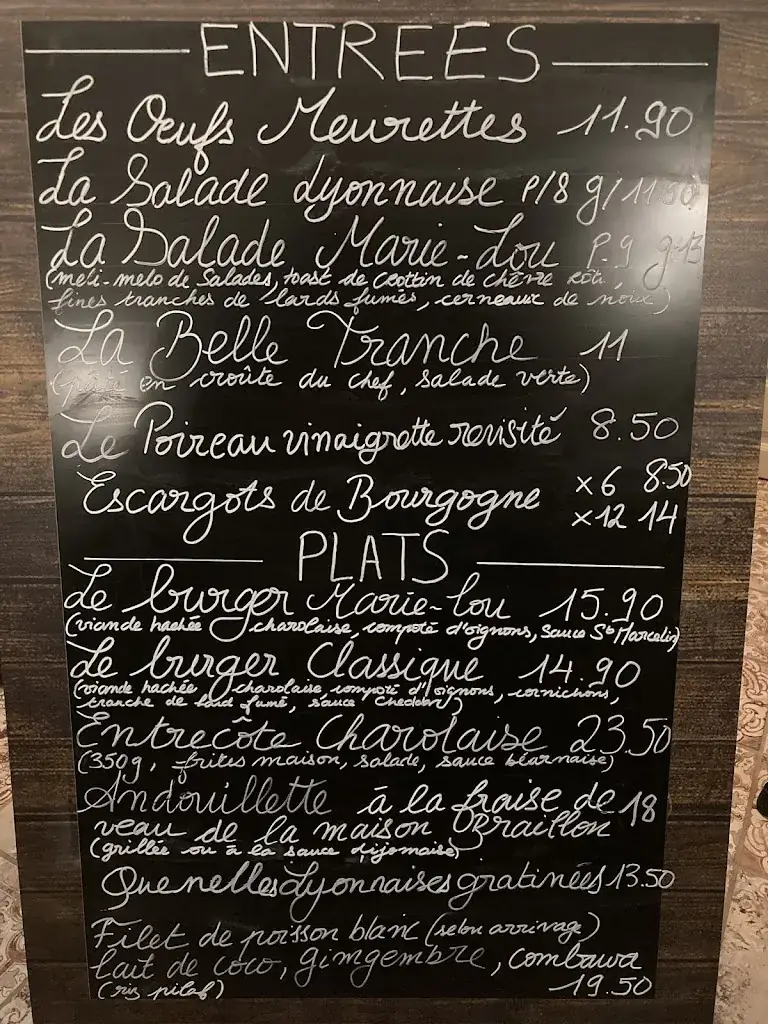 ENTREES
Les Oeufs Meurettes 11.90
La Salade Lyonnaise P/8 g/11.50
La Salade Marie-Lou P.9 g.13
(meli-melo de Salades, toast de Crottin de chèvre rôti,
fines tranches de lards fumés, cerneaux de noix)
La Belle Tranche 11
(pâté en croûte du chef, salade verte)
Le Poireau vinaigrette revisité 8.50
Escargots de Bourgogne x6 8.50
x12 14
PLATS
Le burger Marie-Lou 15.90
(viande hachée charolaise, compoté d'oignons, sauce St Marcelin)
Le burger Classique 14.90
(viande hachée charolaise compoté d'oignons, cornichons,
tranche de lard fumé, sauce cheddar)
Entrecôte Charolaise 23.50
(350g, frites maison, salade, sauce béarnaise)
Andouillette à la fraise de 18
veau de la maison Braillon
(grillée ou à la sauce dijonnaise)
Quenelles Lyonnaises gratinées 13.50
Filet de poisson blanc (selon arrivage)
lait de coco, gimgembre, combawa
(riz pilaf) 19.50